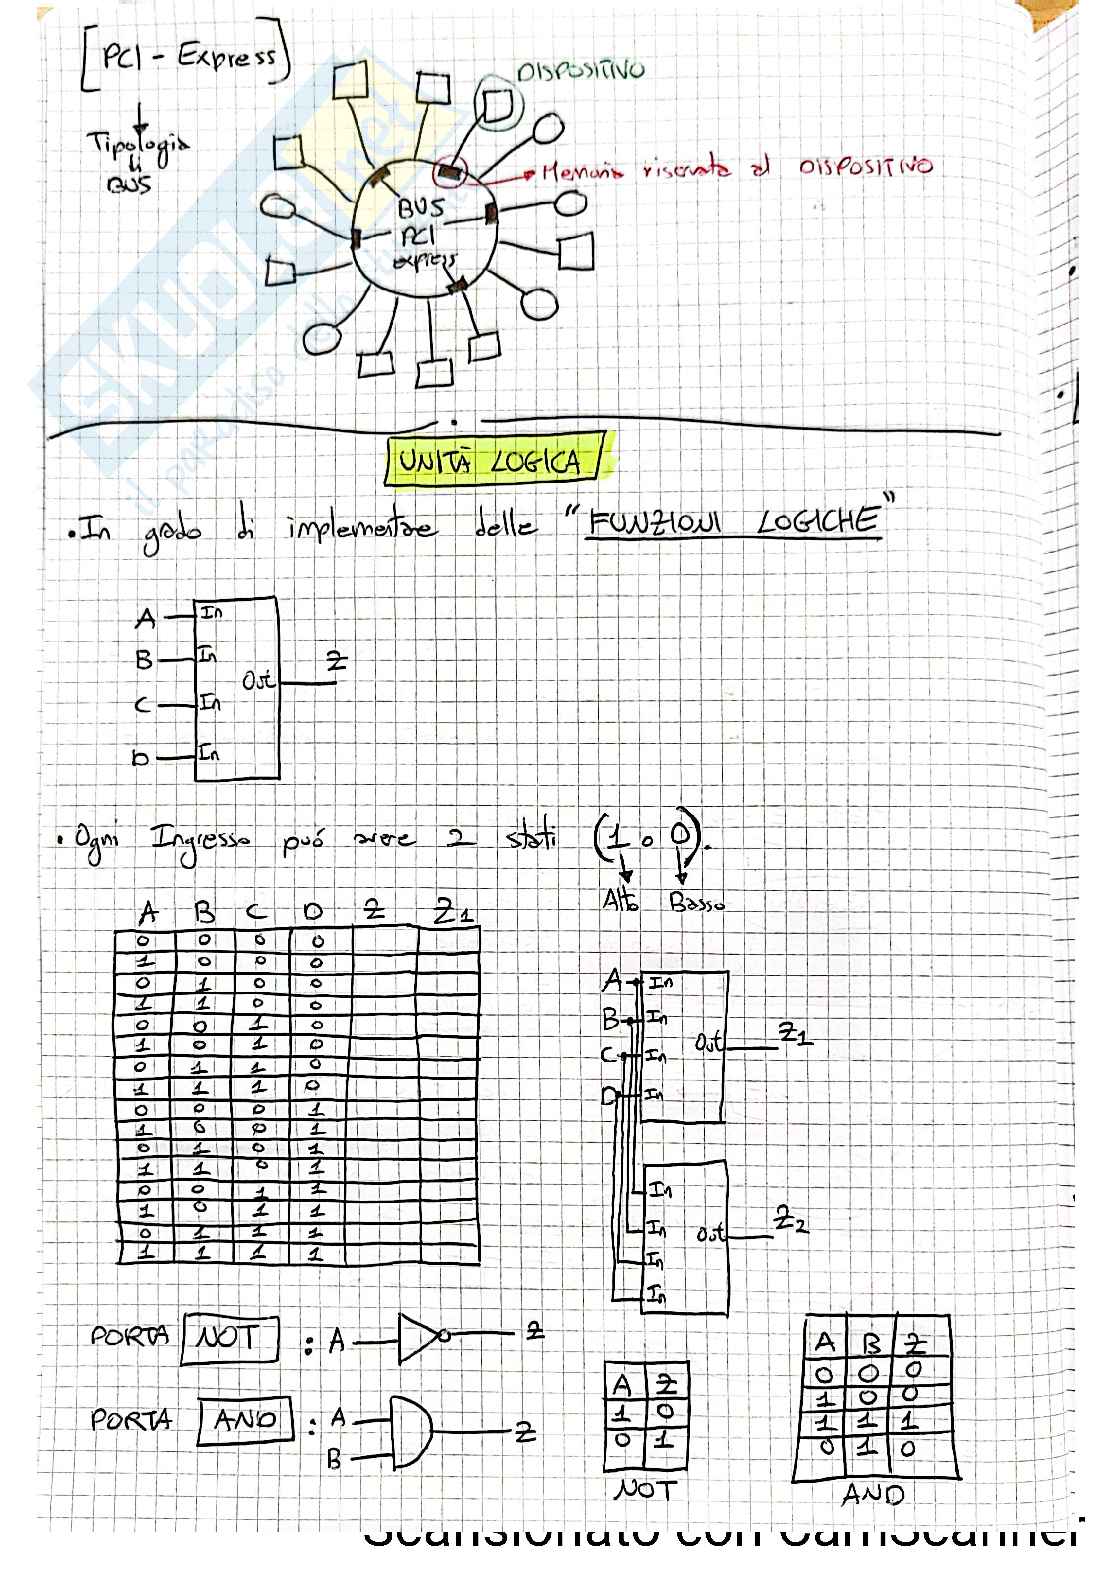 [PCI - Express]
DISPOSITIVO
Tipologia
di
BUS
Memoria riservata al DISPOSITIVO
BUS
PCI
express
UNITÀ LOGICA
• In grado di implementare delle "FUNZIONI LOGICHE"
A In
B In
Out Z
C In
D In
• Ogni Ingresso può avere 2 stati (1 o 0).
Alto Basso
A B C D Z Z1
0 0 0 0
1 0 0 0
0 1 0 0
1 1 0 0
0 0 1 0
1 0 1 0
0 1 1 0
1 1 1 0
0 0 0 1
1 0 0 1
0 1 0 1
1 1 0 1
0 0 1 1
1 0 1 1
0 1 1 1
1 1 1 1
A In
B In
Out Z1
C In
D In
In
In
Out Z2
In
In
PORTA NOT : A Z
PORTA AND : A
B Z
A Z
1 0
0 1
NOT
A B Z
0 0 0
1 0 0
1 1 1
0 1 0
AND
SKUOLA.net
il paradiso dello
Scansionato con CamScanner